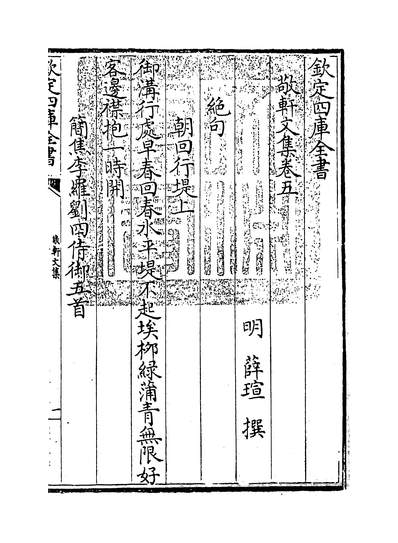 欽定四庫全書
敬軒文集卷五
明 薛瑄 撰
絶句
朝回行堤上
御溝行處早春回春水平堤不起埃柳緑蒲青無限好
客邊襟抱一時開
簡焦李羅劉四侍御五首
欽定四庫全書
敬軒文集
一